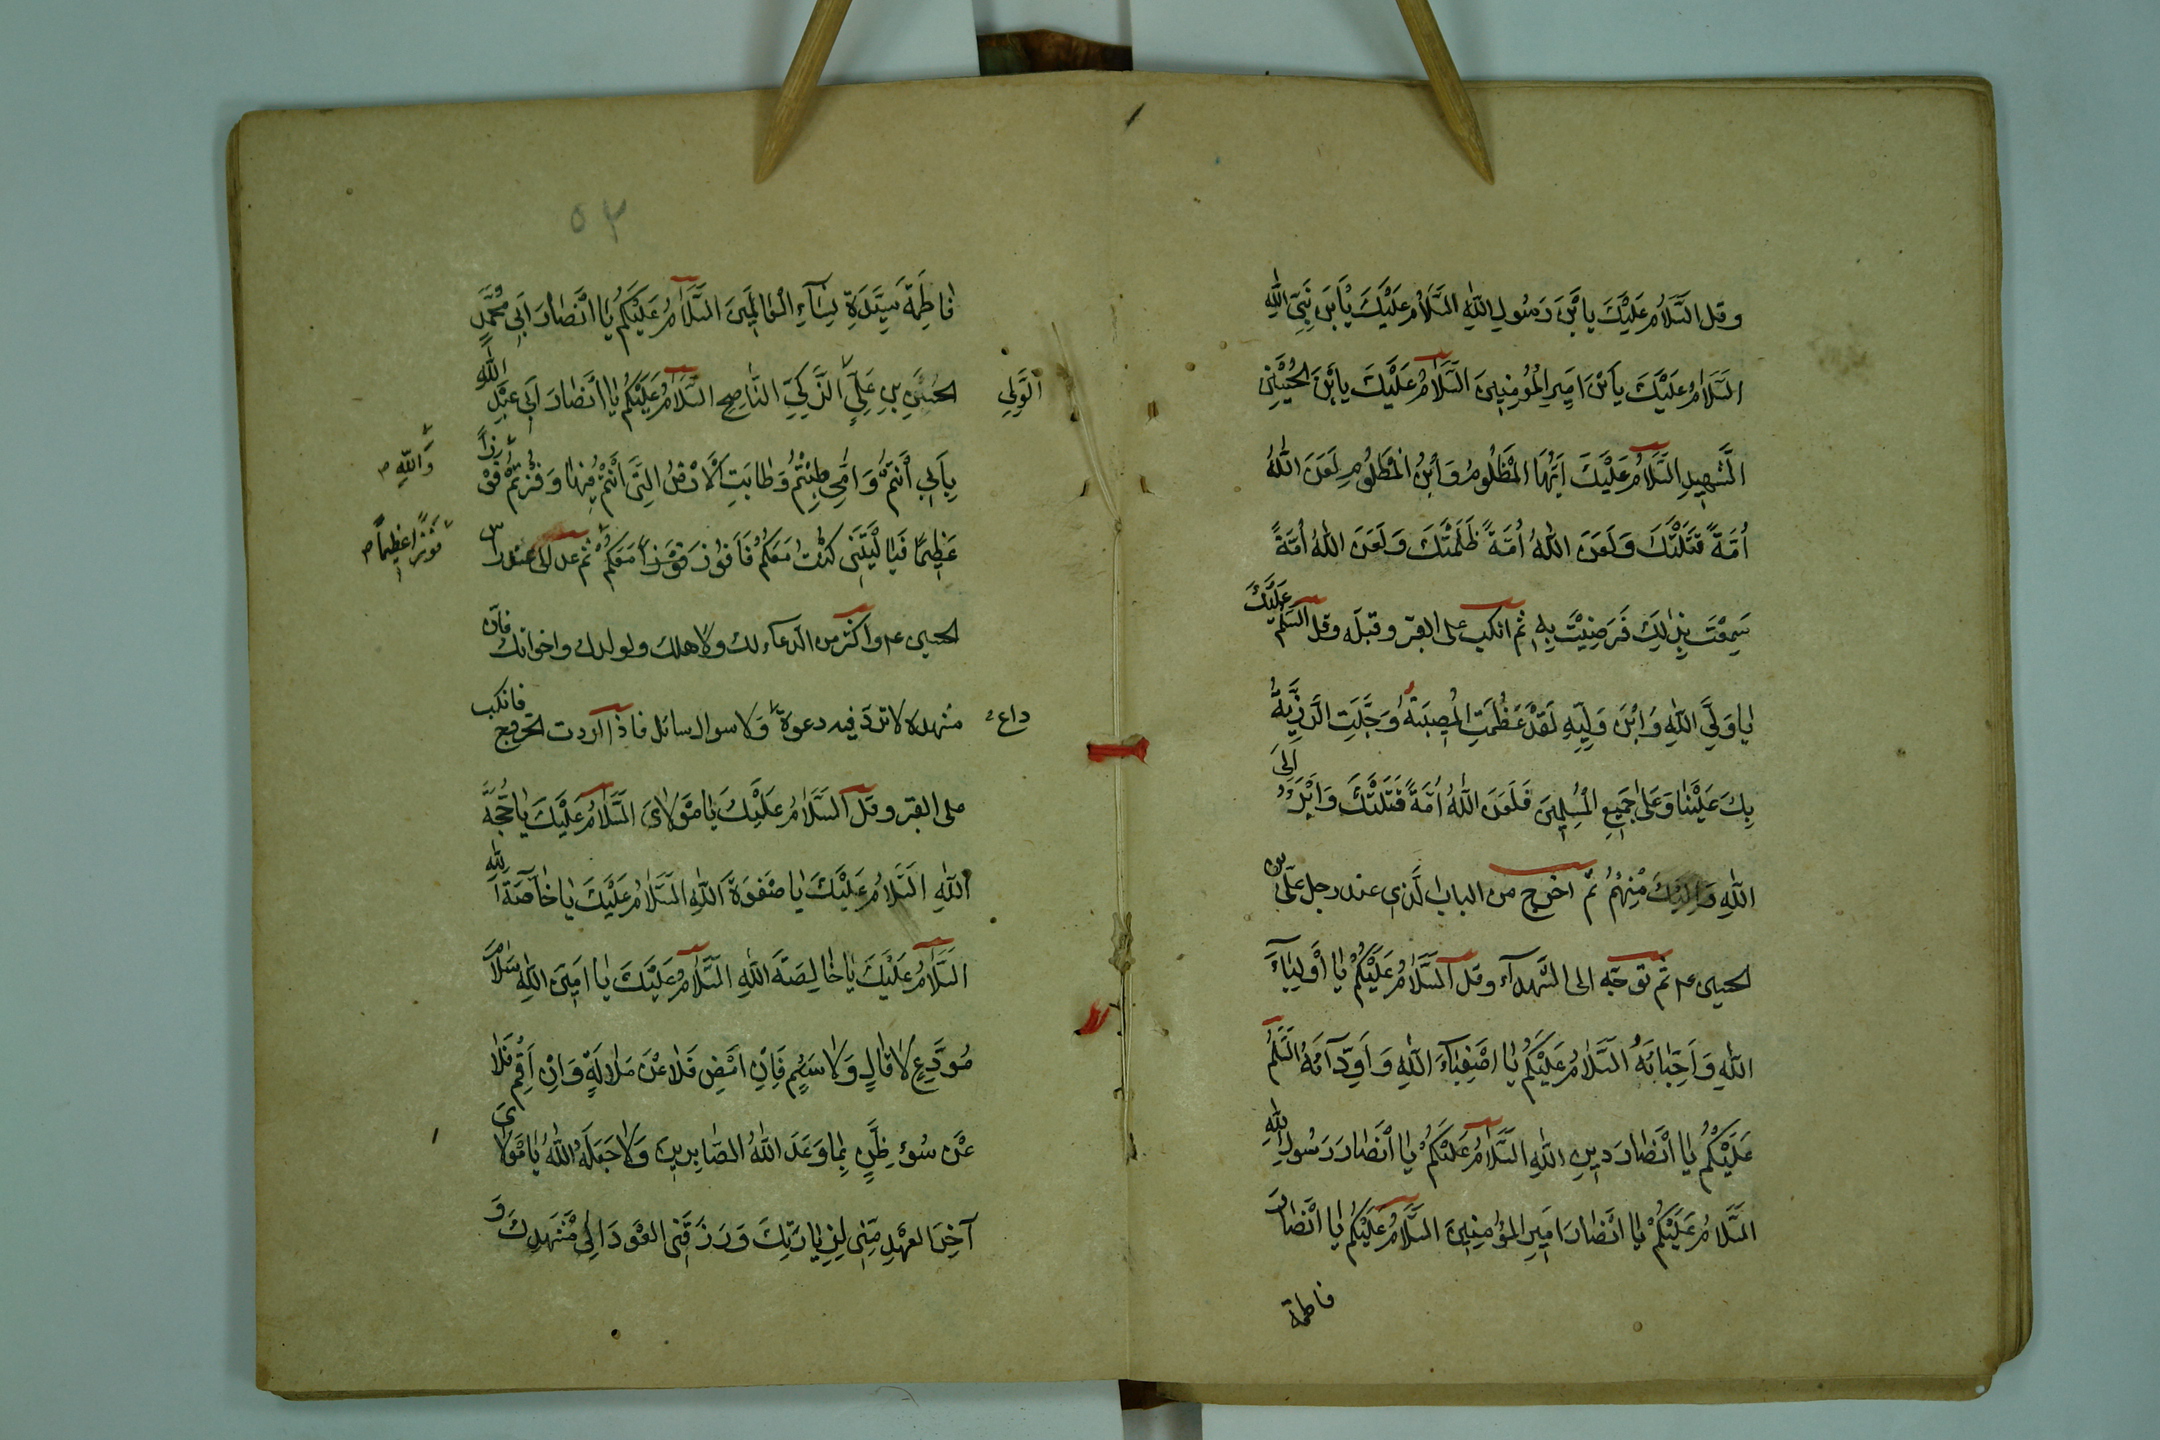 وقل السَّلَامُ عَلَيْكَ يابْنَ رَسُولِ اللهِ السَّلَامُ عَلَيْكَ يَابْنَ نَبِيِّ اللهِ
السَّلَامُ عَلَيْكَ يَابْنَ اَمِيرِ الْمُؤْمِنِينَ السَّلَامُ عَلَيْكَ يابْنَ الْحُسَيْنِ
الشَّهِيدِ السَّلَامُ عَلَيْكَ اَيُّهَا الْمَظْلُومُ وَابْنُ الْمَظْلُومِ لَعَنَ اللهُ
اُمَّةً قَتَلَتْكَ وَلَعَنَ اللهُ اُمَّةً ظَلَمَتْكَ وَلَعَنَ اللهُ اُمَّةً
سَمِعَتْ بِذٰلِكَ فَرَضِيَتْ بِهِ ثم انكب على القبر وقبله وقل السَّلٰمُ عَلَيْكَ
يَا وَلِيَّ اللهِ وَابْنَ وَلِيِّهِ لَقَدْ عَظُمَتِ الْمُصِيبَةُ وَجَلَّتِ الرَّزِيَّةُ
بِكَ عَلَيْنَا وَعَلٰى جَمِيعِ الْمُسْلِمِينَ فَلَعَنَ اللهُ اُمَّةً قَتَلَتْكَ وَاَبْرَءُ اِلَى
اللهِ وَاِلَيْكَ مِنْهُمْ ثم اخرج من الباب الَّذى عند رجل على بن
الحسين ع م ثم توجّه الى الشهدآء وقل السَّلَامُ عَلَيْكُمْ يَا اَوْلِيَاءَ
اللهِ وَاَحِبَّائَهُ السَّلَامُ عَلَيْكُمْ يَا اَصْفِيَاءَ اللهِ وَاَوِدَّآئَهُ السَّلٰمُ
عَلَيْكُمْ يَا اَنْصَارَ دِينِ اللهِ السَّلَامُ عَلَيْكُمْ يَا اَنْصَارَ رَسُولِ اللهِ
السَّلَامُ عَلَيْكُمْ يَا اَنْصَارَ اَمِيرِ الْمُؤْمِنِينَ السَّلَامُ عَلَيْكُمْ يَا اَنْصَارَ
فاطمة
٥٣
فَاطِمَةَ سَيِّدَةِ نِسَآءِ الْعَالَمِينَ السَّلَامُ عَلَيْكُمْ يَا اَنْصَارَ اَبِي مُحَمَّدٍ
الْحَسَنِ بْنِ عَلِيٍّ الزَّكِيِّ النَّاصِحِ السَّلَامُ عَلَيْكُمْ يَا اَنْصَارَ اَبِي عَبْدِ اللهِ
الْوَلِيِّ
بِاَبِي اَنْتُمْ وَاُمِّي طِبْتُمْ وَطَابَتِ الْاَرْضُ الَّتِي اَنْتُمْ فِيهَا وَفُزْتُمْ فَوْزاً
وَاللهِ
عَظِيمًا فَيَا لَيْتَنِي كُنْتُ مَعَكُمْ فَاَفُوزَ فَوْزاً مَعَكُمْ ثم عد الى عند راس
فَوْزًا عَظِيمًا
الحسين ع م واكثر من الدعآء لك ولاهلك ولولدك واخوانك فان
مشهده لا تردّ فيه دعوة ولا سوال سائل فاذا اردت الخروج فانكب
داع
على القبر وقل السَّلَامُ عَلَيْكَ يَا مَوْلَايَ السَّلَامُ عَلَيْكَ يَا حُجَّةَ
اللهِ السَّلَامُ عَلَيْكَ يَا صَفْوَةَ اللهِ السَّلَامُ عَلَيْكَ يَا خَاصَّةَ اللهِ
السَّلَامُ عَلَيْكَ يَا خَالِصَةَ اللهِ السَّلَامُ عَلَيْكَ يَا اَمِينَ اللهِ سَلَامَ
مُوَدِّعٍ لَا قَالٍ وَلَا سَئِمٍ فَاِنْ اَمْضِ فَلَا عَنْ مَلَالَةٍ وَاِنْ اُقِمْ فَلَا
عَنْ سُوءِ ظَنٍّ بِمَا وَعَدَ اللهُ الصَّابِرِينَ وَلَا جَعَلَهُ اللهُ يَا مَوْلَايَ
آخِرَ الْعَهْدِ مِنِّي لِزِيَارَتِكَ وَرَزَقَنِي الْعَوْدَ اِلٰى مَشْهَدِكَ وَ